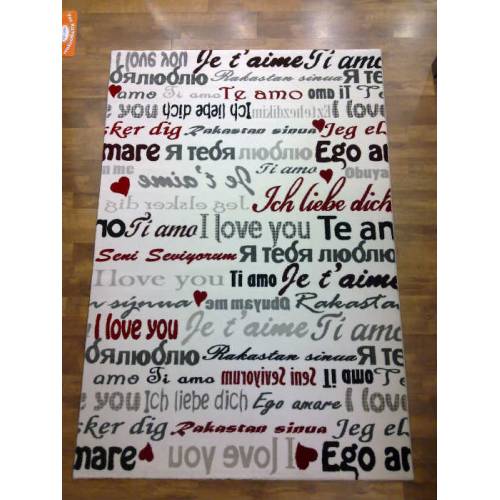 I love you Je t'aime Ti amo
бялюблю Rakastan sinua Я те
amo Ti amo Te amo Ti amo Te
e you Ich liebe dich I love you
sker dig Rakastan sinua Jeg el
mare Я тебя люблю Ego an
me Ti amo Obuya
Je t'aime Je t'aime
Jeg elsker dig Ich liebe dich
no Ti amo I love you Te an
Seni Seviyorum Я тебя люблю
I love you Ti amo Je t'aime
n sinua Obuyam me Rakasta
I love you Je t'aime Ti amo
бялюблю Rakastan sinua Я те
amo Ti amo Seni Seviyorum Ti amo Te
e you Ich liebe dich Ego amare I love
sker dig Rakastan sinua Jeg el
mare I love you Ego an